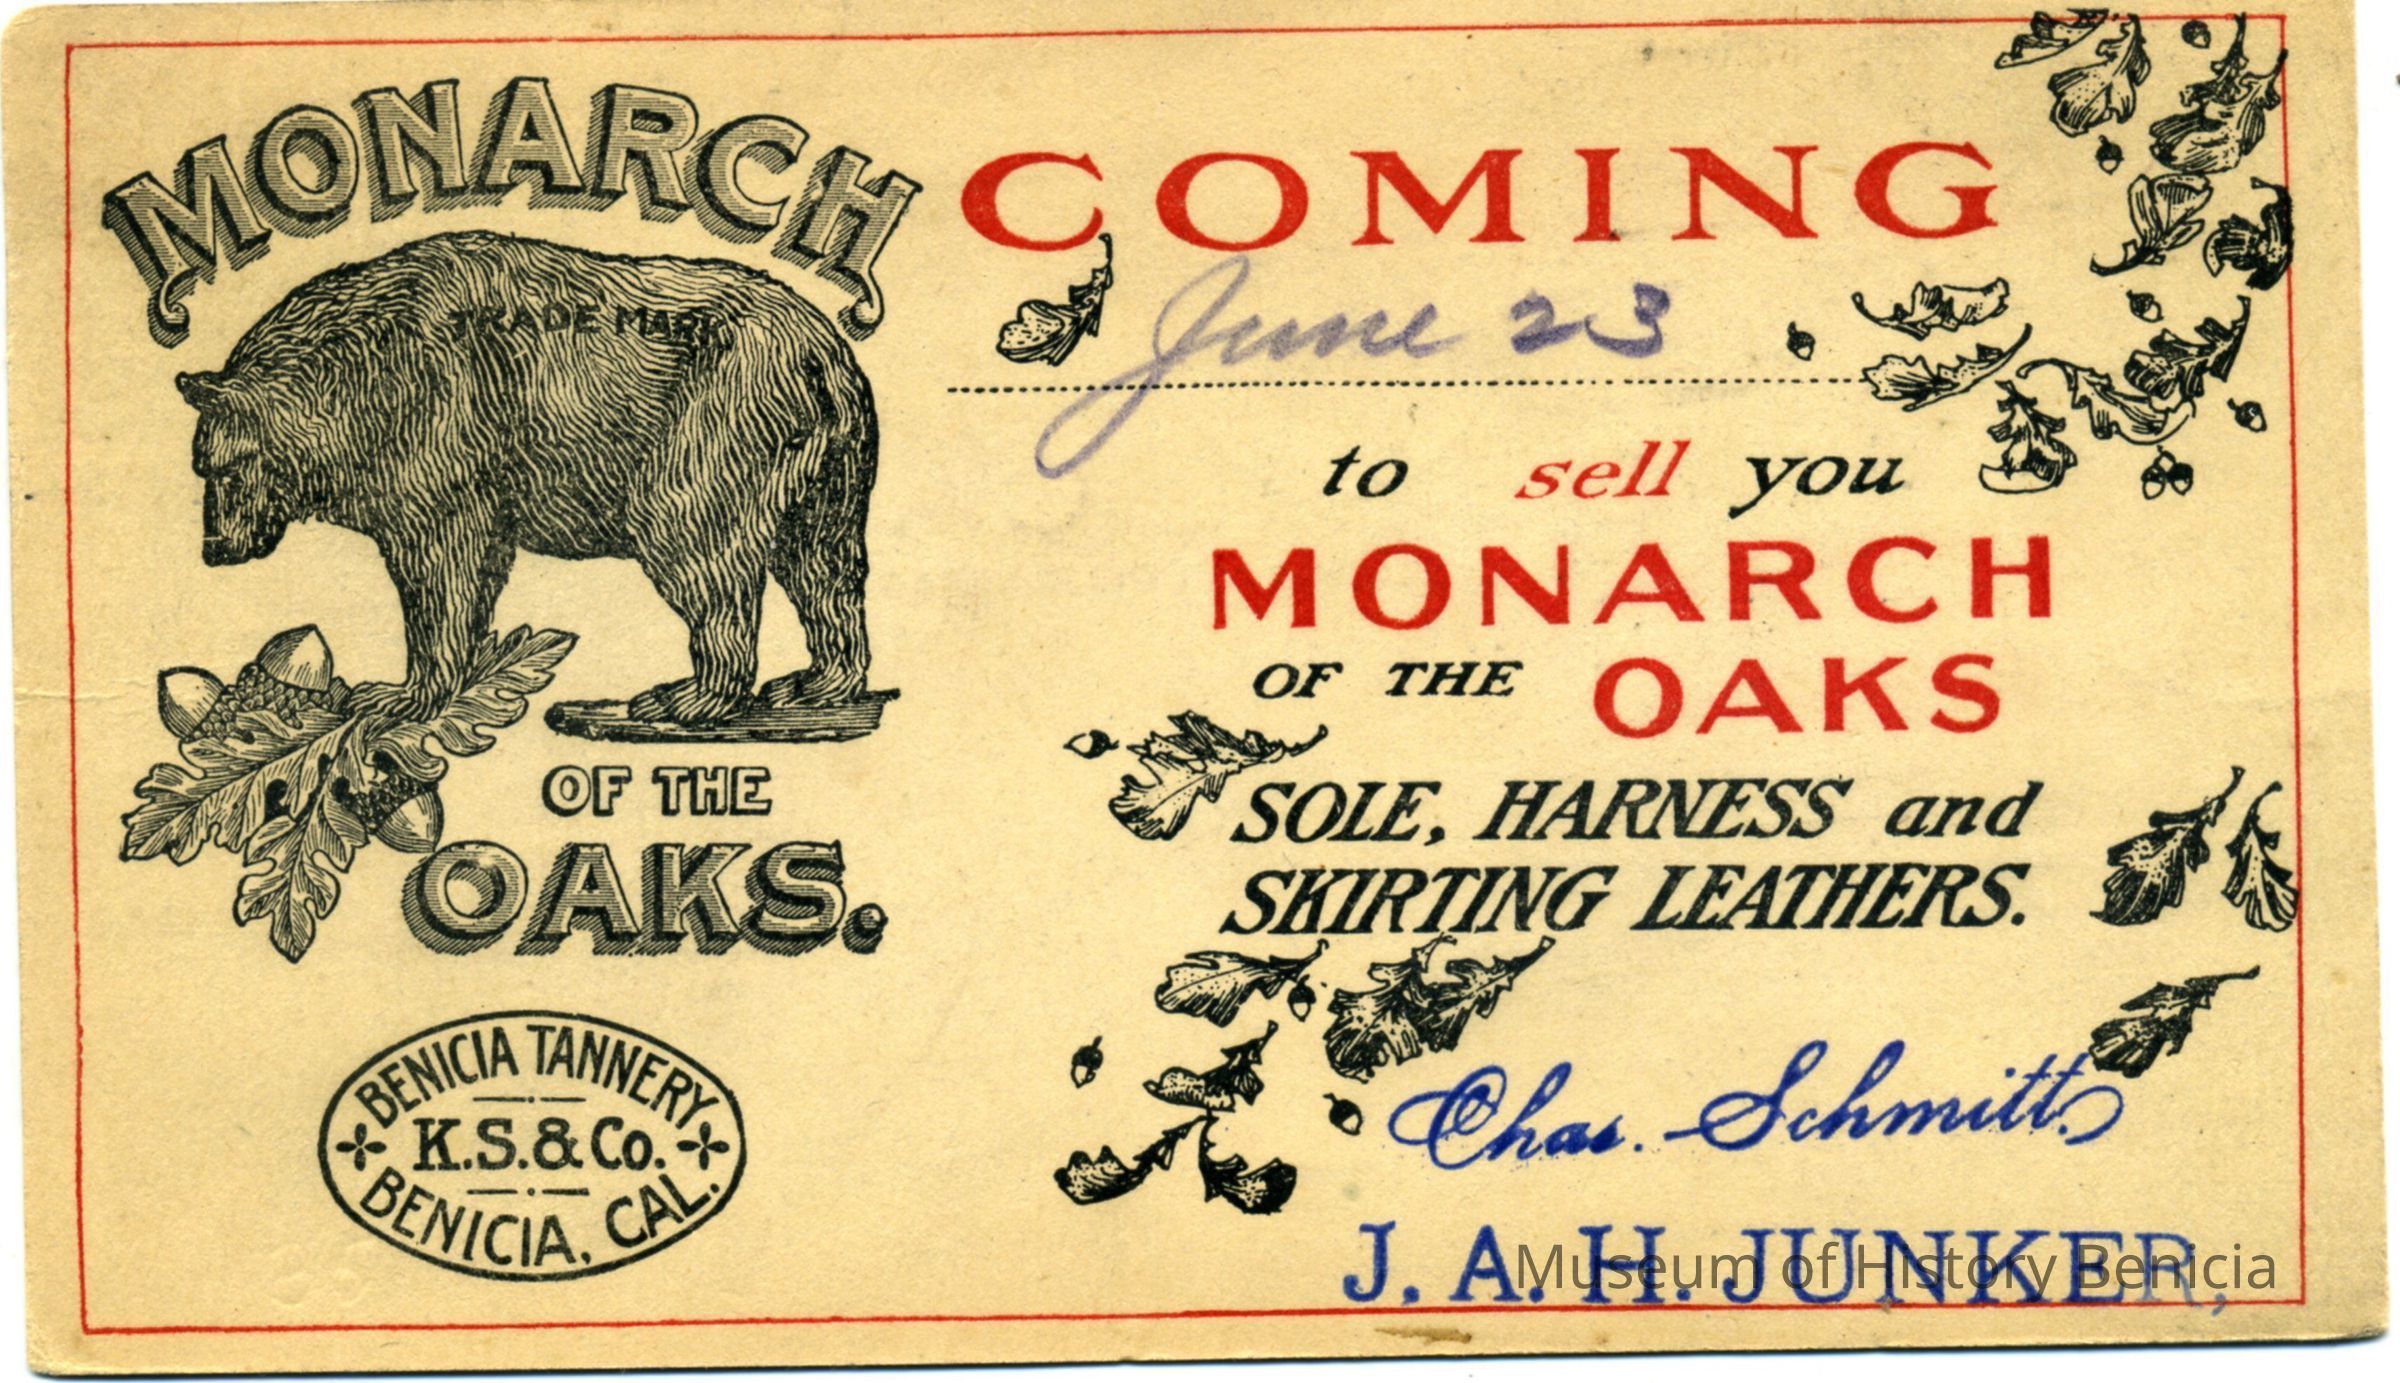 MONARCH
TRADE MARK
OF THE
OAKS.
BENICIA TANNERY
K.S.& Co.
BENICIA, CAL.
COMING
June 23
to sell you
MONARCH
OF THE OAKS
SOLE, HARNESS and
SKIRTING LEATHERS.
Chas. Schmitt.
J. A. H. JUNKER,
Museum of History Benicia